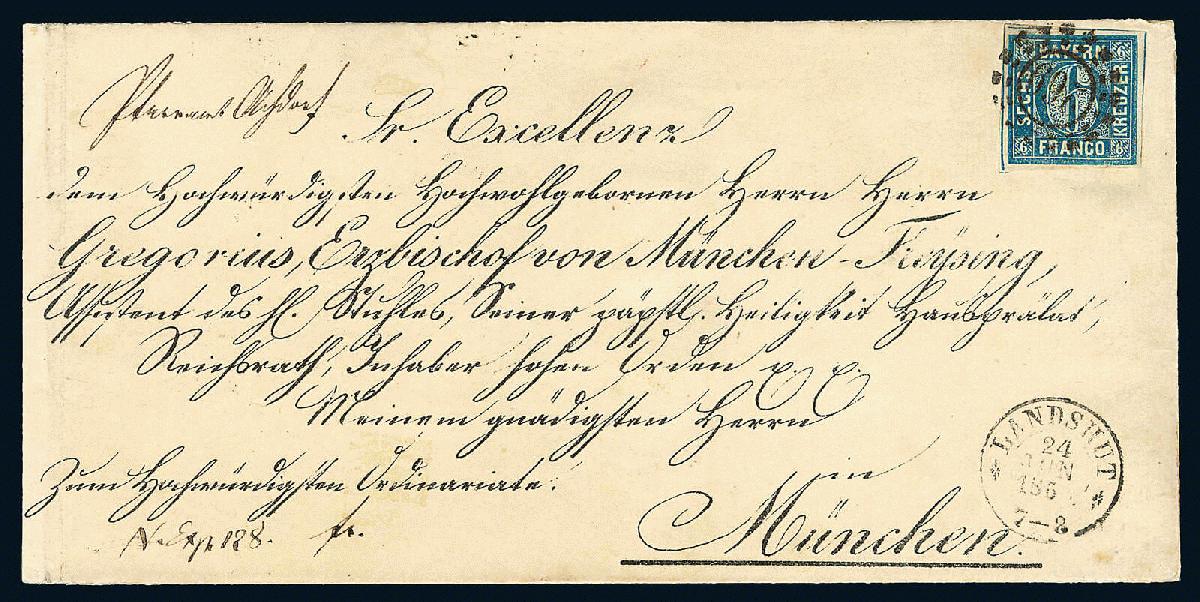 Pfarramt Achdorf
Sr. Excellenz
dem Hochwürdigsten Hochwohlgebornen Herrn Herrn
Gregorius, Erzbischof von München-Freysing,
Assistent des hl. Stuhles, Seiner päpstl. Heiligkeit Hausprälat,
Reichsrath, Inhaber hohen Orden
Meinem gnädigsten Herrn
Zum Hochwürdigsten Ordinariate.
in
München.
N. Exp. 188. fr.
BAYERN
SECHS
KREUZER
FRANCO
6
6
6
6
6
LANDSHUT
24
JUN
186
7-8